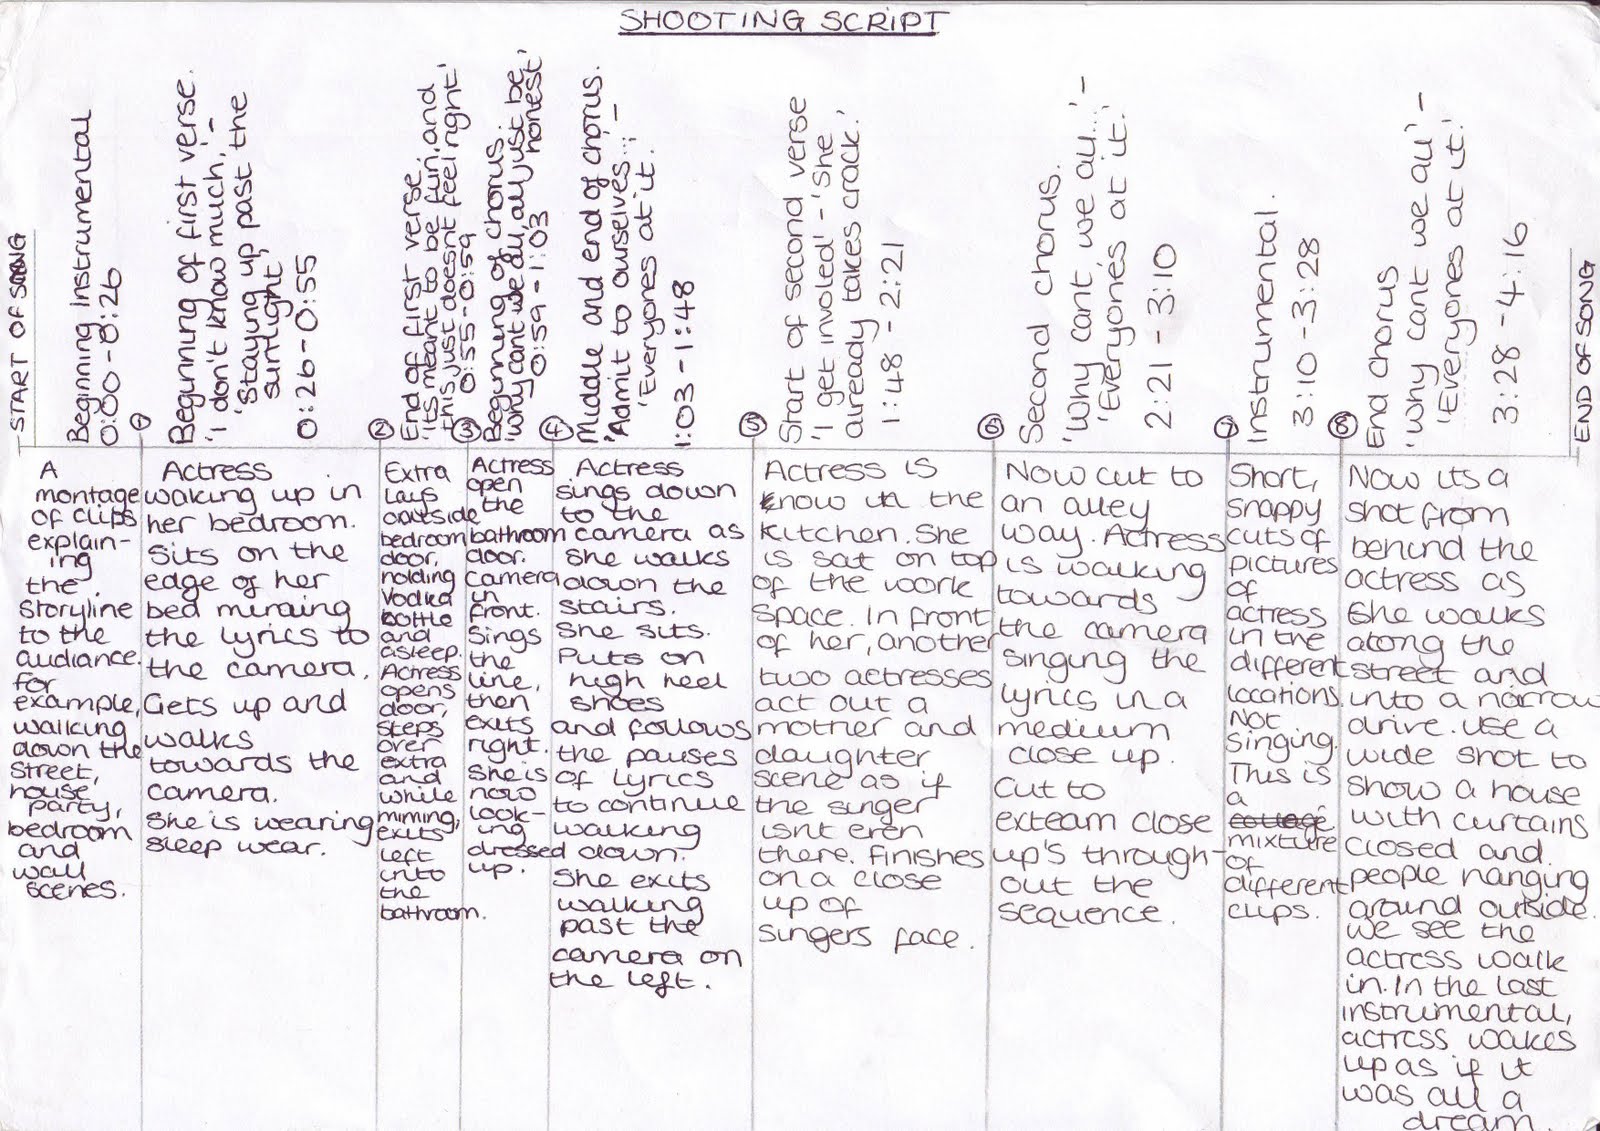 SHOOTING SCRIPT
START OF SONG
Beginning instrumental
0:00 - 0:26
1
Beginning of first verse.
'I don't know much,' -
'Staying up, past the
sunlight'
0:26 - 0:55
2
End of first verse.
'its meant to be fun, and
this just doesnt feel right'
0:55 - 0:59
3
Beginning of chorus.
'Why cant we all, all just be,
honest'
0:59 - 1:03
4
Middle and end of chorus.
'Admit to ourselves...' -
'Everyones at it.'
1:03 - 1:48
5
Start of second verse
'I get involed' - 'she
already takes crack.'
1:48 - 2:21
6
Second chorus.
'Why cant we all...' -
'Everyones at it.'
2:21 - 3:10
7
Instrumental.
3:10 - 3:28
8
End chorus
'Why cant we all' -
'Everyones at it.'
3:28 - 4:16
END OF SONG
A
montage
of clips
explain-
ing
the
storyline
to the
audiance.
for
example,
walking
down the
street,
house
party,
bedroom
and
wall
scenes.
Actress
waking up in
her bedroom.
Sits on the
edge of her
bed miming
the lyrics to
the camera.
Gets up and
walks
towards the
camera.
She is wearing
sleep wear.
Extra
lays
outside
bedroom
door,
holding
vodka
bottle
and
asleep.
Actress
opens
door,
steps
over
extra
and
while
miming,
exits
left
into
the
bathroom.
Actress
open
the
bathroom
door.
Camera
in
front.
Sings
the
line,
then
exits
right.
She is
now
look-
ing
dressed
up.
Actress
sings down
to the
camera as
she walks
down the
stairs.
She sits.
Puts on
high heel
shoes
and follows
the pauses
of lyrics
to continue
walking
down.
She exits
walking
past the
camera on
the left.
Actress is
know in the
kitchen. She
is sat on top
of the work
space. In front
of her, another
two actresses
act out a
mother and
daughter
scene as if
the singer
isnt even
there. Finishes
on a close
up of
singers face.
Now cut to
an alley
way. Actress
is walking
towards
the camera
singing the
lyrics in a
medium
close up.
Cut to
exteam close
up's through-
out the
sequence.
Short,
snappy
cuts of
pictures
of
actress
in the
different
locations.
Not
singing.
This is
a
mixture
of
different
clips.
Now its a
shot from
behind the
actress as
she walks
along the
street and
into a narrow
drive. Use a
wide shot to
show a house
with curtains
closed and
people hanging
around outside.
We see the
actress walk
in. In the last
instrumental,
actress wakes
up as if it
was all a
dream.